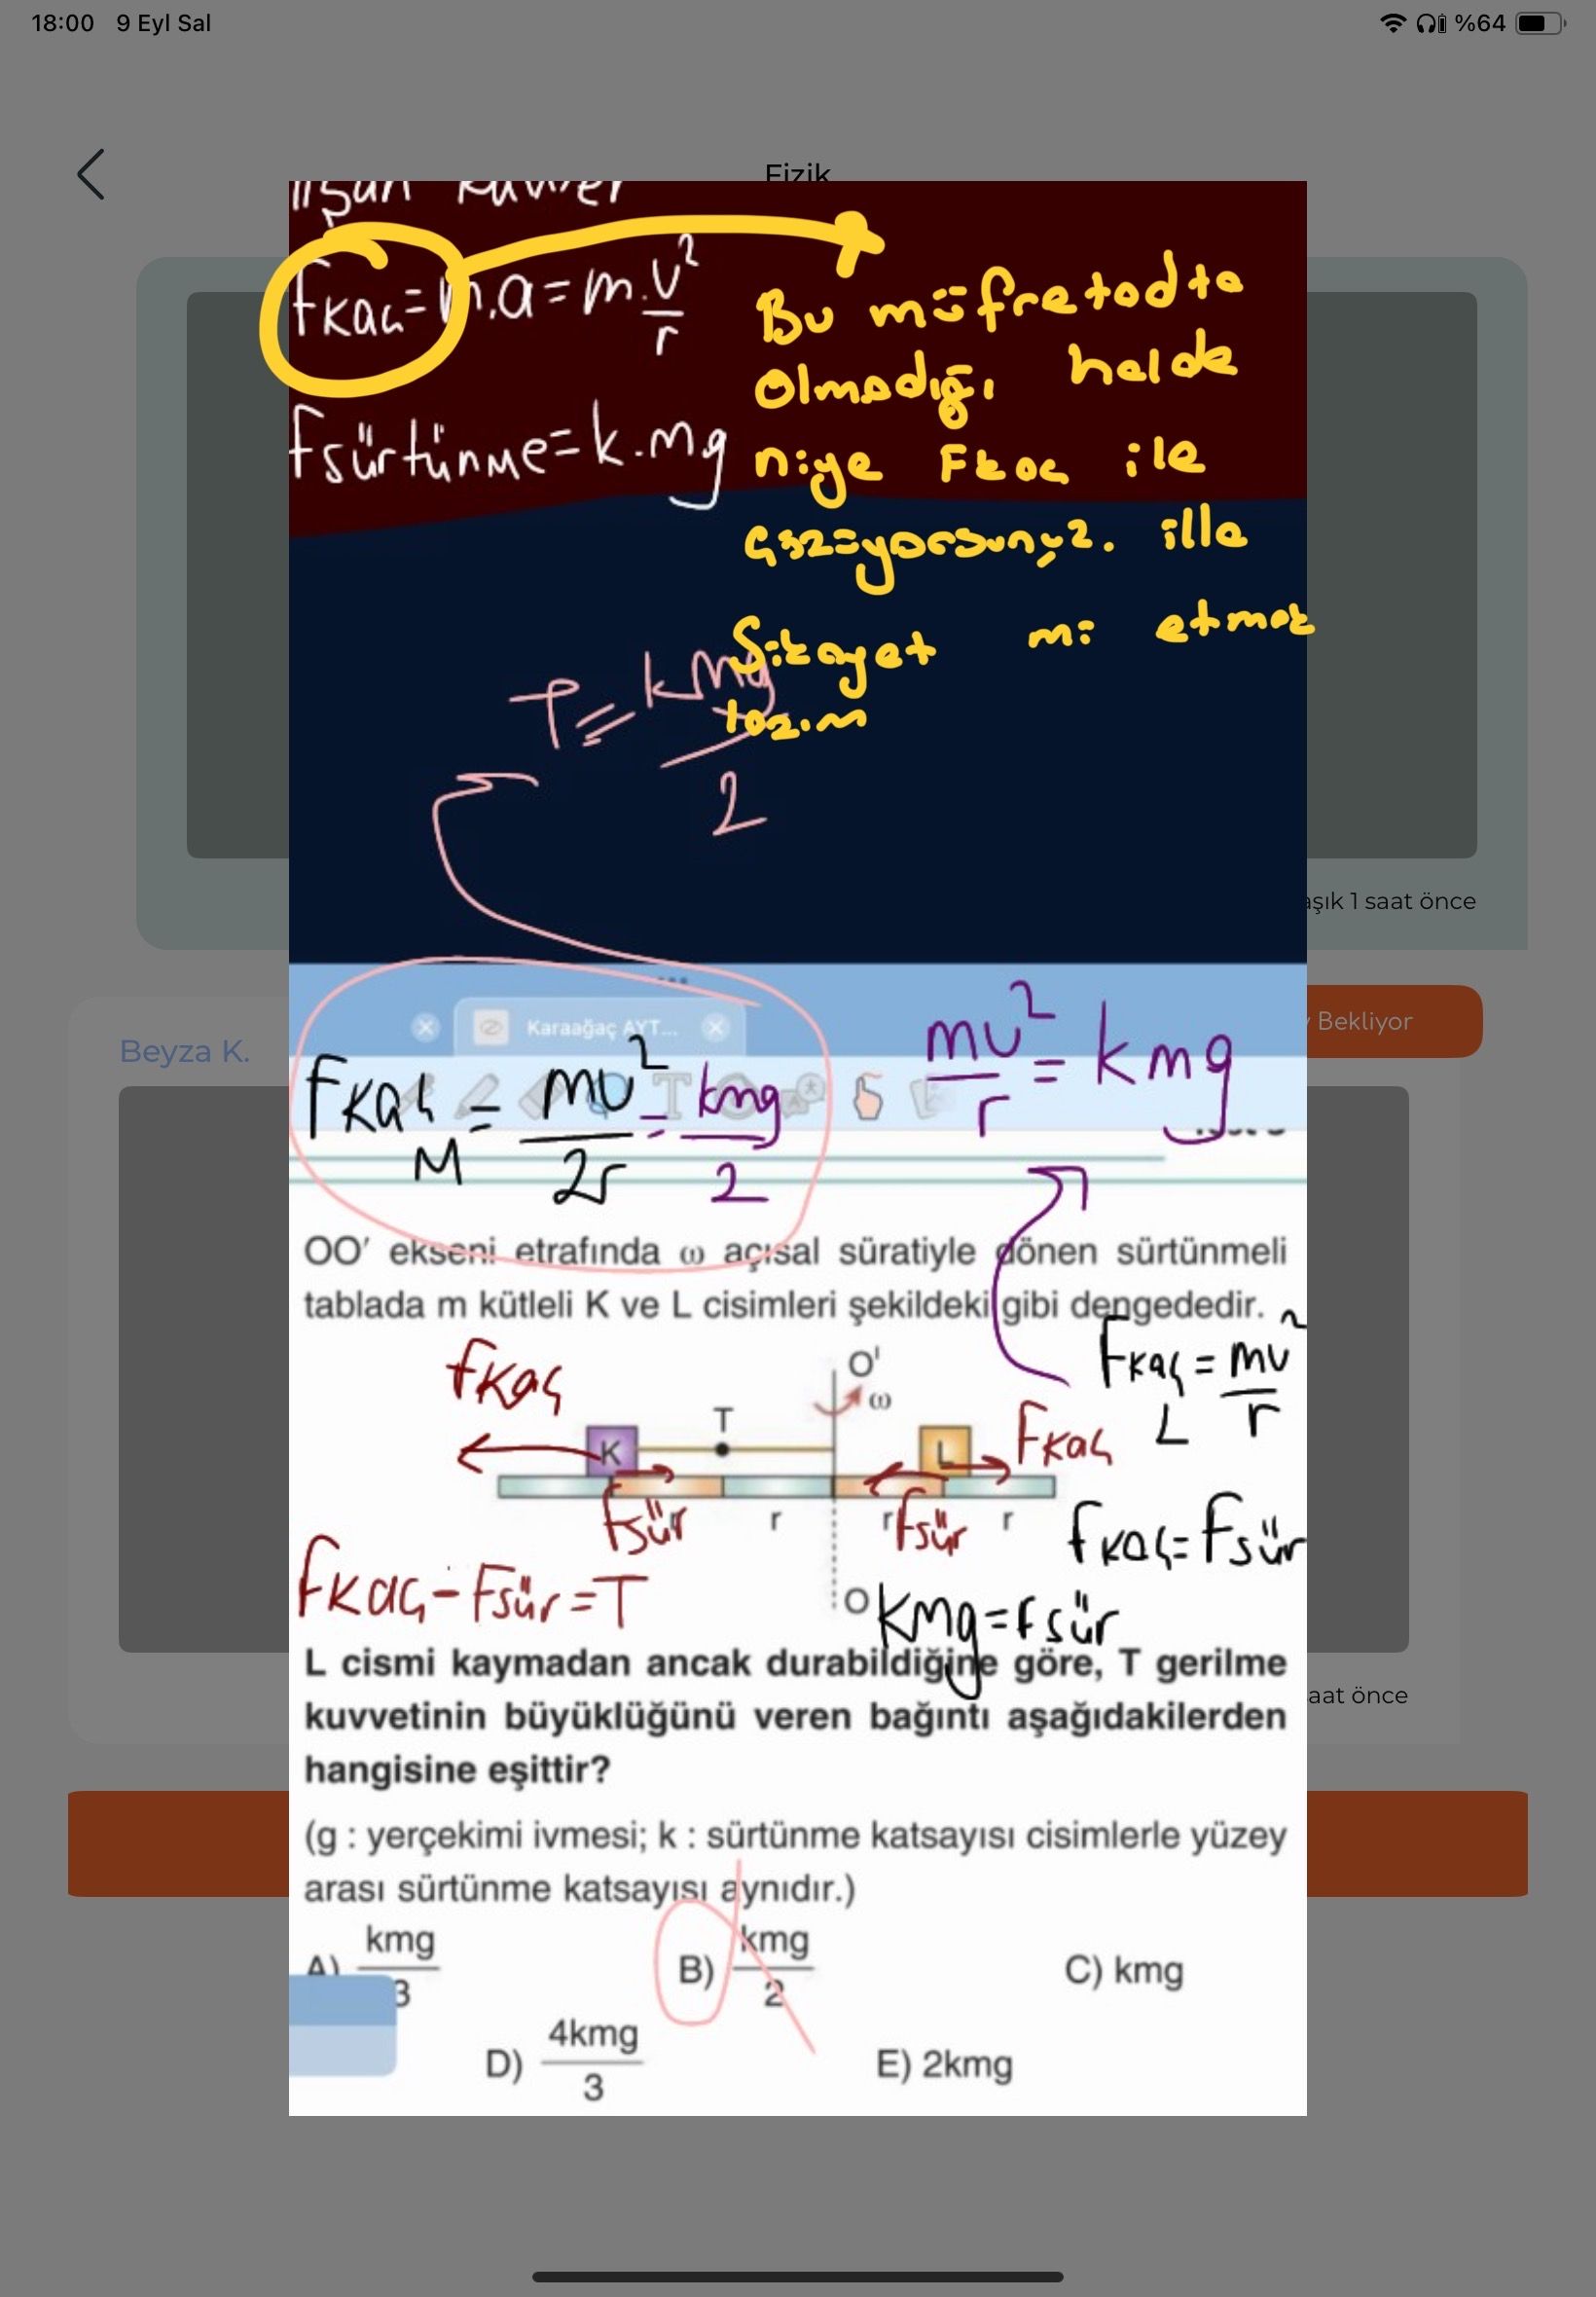 18:00 9 Eyl Sal
%64
Fizik
Fkaç=m.a=m.v²/r
Bu müfredatda
Olmadığı halde
Fsürtünme=k.mg
niye Fkaç ile
çözüyorsunuz. illa
Şikayet mi etmek
lazım
T=kmg/2
aşık 1 saat önce
Bekliyor
Beyza K.
Karaağaç AYT...
mv²/r=kmg
Fkaç M = mv²/2r = kmg/2
OO' ekseni etrafında ω açısal süratiyle dönen sürtünmeli
tablada m kütleli K ve L cisimleri şekildeki gibi dengededir.
Fkaç L = mv²/r
Fkaç
O'
ω
T
K
L
Fkaç
Fsür
r
r
Fsür
r
Fkaç=Fsür
Fkaç-Fsür=T
O
kmg=Fsür
L cismi kaymadan ancak durabildiğine göre, T gerilme
kuvvetinin büyüklüğünü veren bağıntı aşağıdakilerden
hangisine eşittir?
aat önce
(g : yerçekimi ivmesi; k : sürtünme katsayısı cisimlerle yüzey
arası sürtünme katsayısı aynıdır.)
A) kmg/3
B) kmg/2
C) kmg
D) 4kmg/3
E) 2kmg